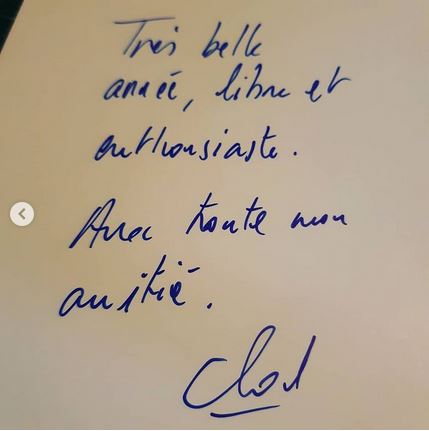 Très belle
année, libre et
enthousiaste.
Avec toute mon
amitié.